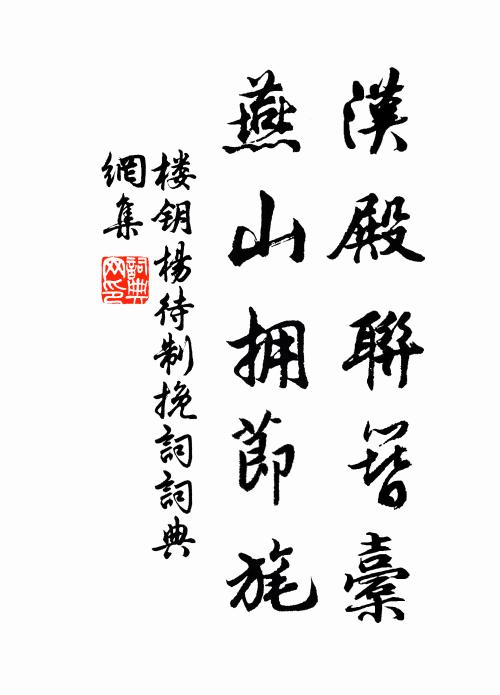 漢殿聯簪橐
燕山拥節旄
楼钥楊待制挽詞詞典
網集
詞典
網印